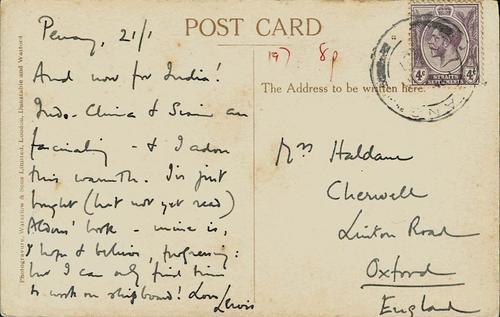 POST CARD
Penang, 21/1
And now for India!
Indo-China & Siam are
fascinating - & I adore
this warmth. I've just
bought (but not yet read)
Aldous' book - mine is,
I hope & believe, progressing:
but I can only find time
to work on shipboard! Love
Lewis
197 8p
The Address to be written here.
Mrs Haldane
Cherwell
Linton Road
Oxford
England
STRAITS
SETTLEMENTS
4c 4c
Photogravure, Waterlow & Sons Limited, London, Dunstable and Watford